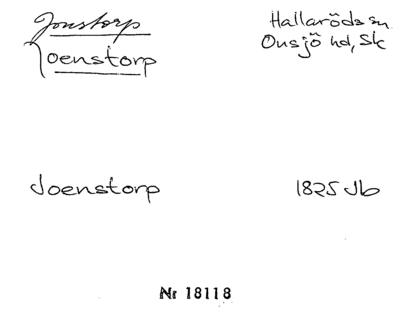 Jonstorp Hallaröds sn
Joenstorp Onsjö hd, Sk
Joenstorp 1825 Jb
Nr 18118